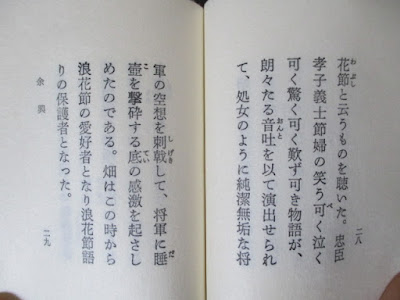 二八
花節と云うものを聴いた。忠臣
孝子義士節婦の笑う可く泣く
可く驚く可く歎ず可き物語が、
朗々たる音吐を以て演出せられ
て、処女のように純潔無垢な将
軍の空想を刺戟して、将軍に唾
壺を撃砕する底の感激を起さし
めたのである。畑はこの時から
浪花節の愛好者となり浪花節語
りの保護者となった。
余興
二九